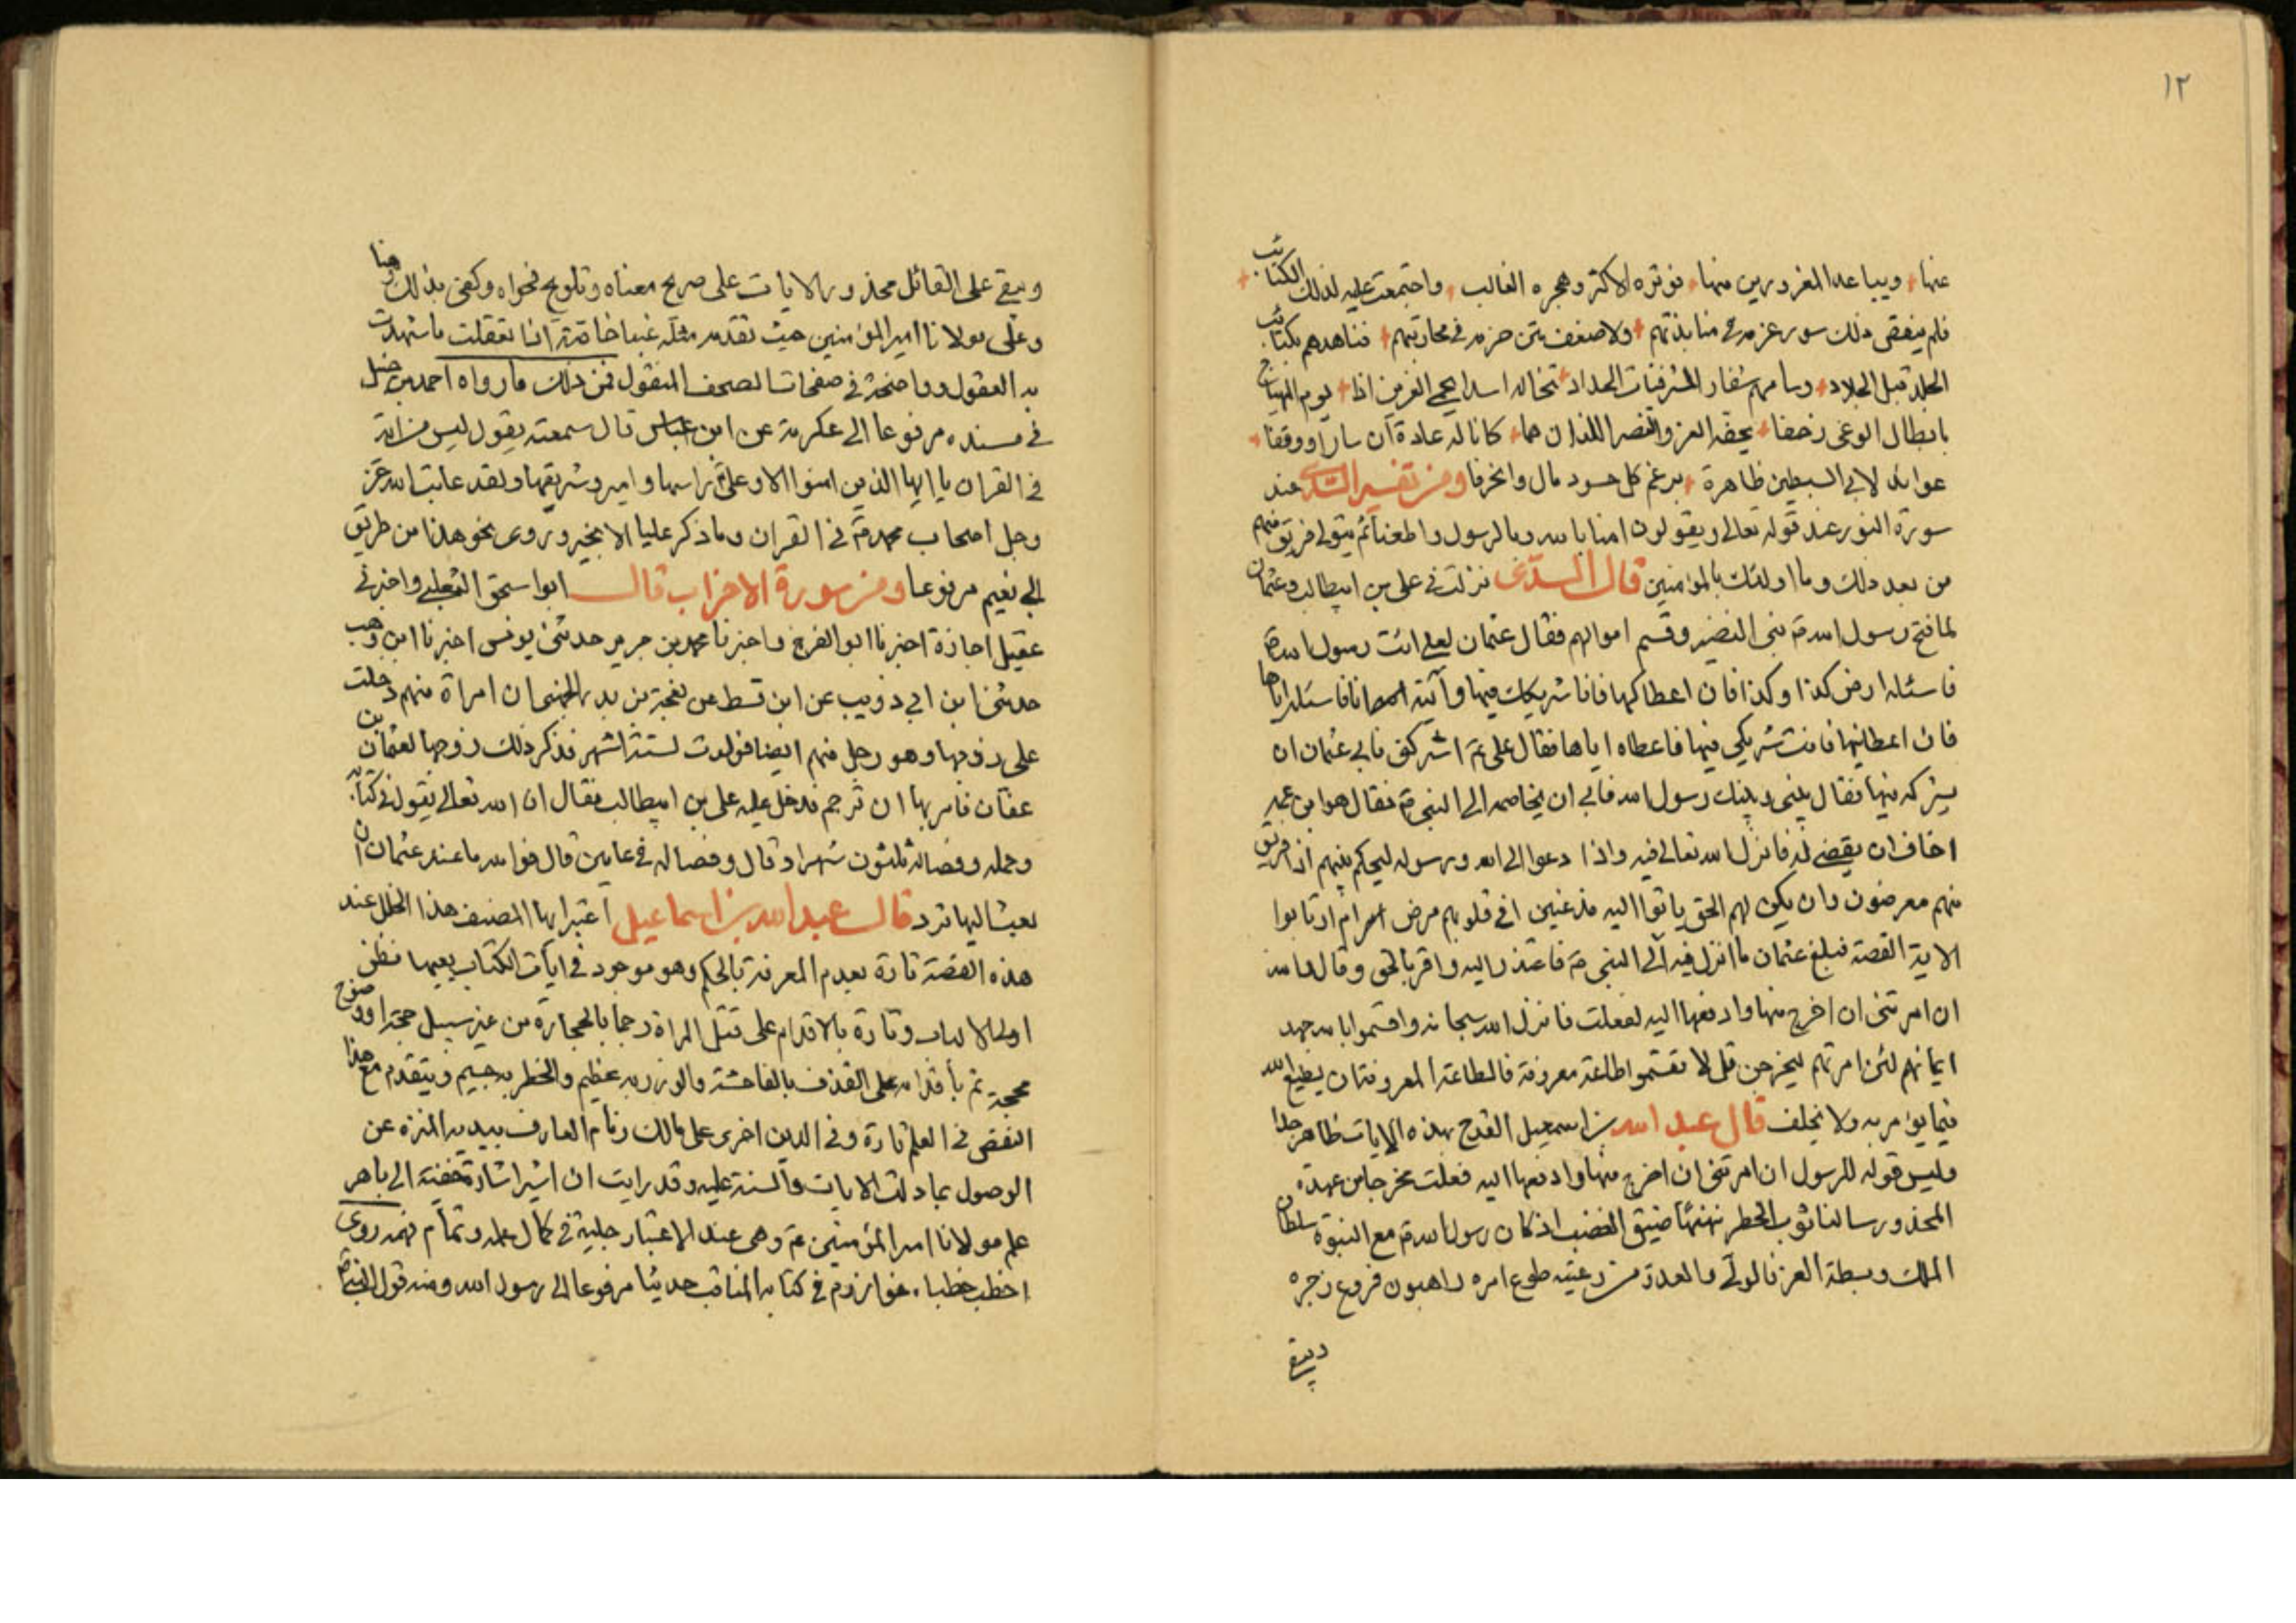 ١٢
عنها ويباعد المغرورين منها فوتره الاكثر وهجره الغالب واجتمعت عليه لذلك الكتائب
فلم ينقض ذلك سور عزمه في منابذتهم ولا ضعف متن حزمه في محاربتهم فناهدهم بكتائب
الجلد قبل الجلاد وسامهم شفار المشرفيات الحداد تخاله اسدا يحمي العرين اذا يوم الهياج
بابطال الوغى زحفا يحفه العز والنصر اللذان هما كانا له عادة ان سار او وقفا
عوائد لابي السبطين ظاهرة برغم كل حسود مال وانحرفا ومن تفسير السدي عند
سورة النور عند قوله تعالى ويقولون امنا بالله وبالرسول واطعنا ثم يتولى فريق منهم
من بعد ذلك وما اولئك بالمؤمنين قال السدي نزلت في علي بن ابيطالب وعثمان
لما فتح رسول الله ص بني النضير وقسم اموالهم فقال عثمان لعلي ائت رسول الله ص
فاسئله ارض كذا وكذا فان اعطاكها فانا شريكك فيها وآتيه انا فاسئله اياها
فان اعطانيها فانت شريكي فيها فاعطاه اياها فقال علي ع اشركني فابى عثمان ان
يشركه فيها فقال بيني وبينك رسول الله فابى ان يخاصمه الى النبي ص فقال هو ابن عمه
اخاف ان يقضي له فانزل الله تعالى فيه واذا دعوا الى الله ورسوله ليحكم بينهم اذا فريق
منهم معرضون وان يكن لهم الحق ياتوا اليه مذعنين افي قلوبهم مرض ام ارتابوا
الاية القصة فبلغ عثمان ما انزل فيه اتى النبي ص فاعتذر اليه واقر بالحق وقال
ان امرتني ان اخرج منها وادفعها اليه لفعلت فانزل الله سبحانه واقسموا بالله جهد
ايمانهم لئن امرتهم ليخرجن قل لا تقسموا طاعة معروفة فالطاعة المعروفة ان يطيع الله
فيما يؤمر به ولا يخلف قال عبد الله بن اسمعيل القدح بهذه الايات ظاهر جدا
وليس قوله للرسول ان امرتني ان اخرج منها وادفعها اليه فعلت مخرجا من عهدة
المحذور سالبا ثوب الخطر ضيق الغضب اذ كان رسول الله ص مع النبوة سلطان
الملك وبسطة العز فالولي والعدو من رعيته طوع امره راهبون فروع زجره
ويبقى
ويبقى على القائل محذور الايات على صريح معناه وتلويح فحواه وكفى بذلك
وعلى مولانا امير المؤمنين حيث تقدم مثله غبا خاتمة انا تعقلت ما شهدت
به العقول وواضحة في صفحات الصحف المنقول فمن ذلك ما رواه احمد بن حنبل
في مسنده مرفوعا الى عكرمة عن ابن عباس قال سمعته يقول ليس من اية
في القران يا ايها الذين امنوا الا وعلي ع راسها واميرها وشريفها ولقد عاتب الله عز
وجل اصحاب محمد ص في القران وما ذكر عليا الا بخير وروى نحو هذا من طريق
ابي نعيم مرفوعا ومن سورة الاحزاب قال ابو اسحق الثعلبي واخبرني
عقيل اجازة اخبرنا ابو الفرج واخبرنا محمد بن جرير حدثني يونس اخبرنا ابن وهب
حدثنا ابن ابي ذويب عن ابن قسط عن نعجة بن بدر الجهني ان امراة منهم دخلت
على زوجها وهو رجل منهم ايضا فولدت لستة اشهر فذكر ذلك زوجها لعثمان بن
عفان فامر بها ان ترجم فدخل عليه علي بن ابيطالب فقال ان الله تعالى يقول في كتابه
وحمله وفصاله ثلثون شهرا وقال وفصاله في عامين قال فوالله ما عند عثمان ان
بعث اليها ترد قال عبد الله بن اسماعيل اعتبر ايها المصنف هذا الخلل عند
هذه القصة تارة بعدم المعرفة بالحكم وهو موجود في ايات الكتاب يعيها فطن
اولي الالباب وتارة بالاقدام على قتل المراة رجما بالحجارة من غير سبيل حجة او وضوح
محجة ثم باقدامه على القذف بالفاحشة والوزر به عظيم والخطر به جسيم ويتقدم مع هذا
النقض في العلم تارة وفي الدين اخرى على مالك زمام المعارف بيديه المنزه عن
الوصول بما دلت الايات والسنة عليه وقد رايت ان اشير اشارة خفية الى باهر
علم مولانا امير المؤمنين ع وهي عند الاعتبار جلية في كمال علمه وتمام فهمه روى
اخطب خطباء خوارزم في كتابه المناقب حديثا مرفوعا الى رسول الله ومنه قول النبي ص